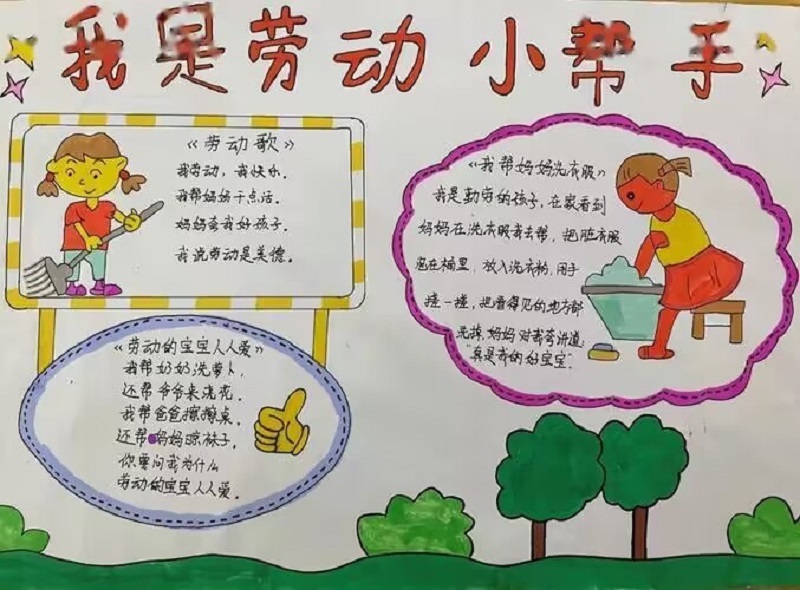 我是劳动小帮手
《劳动歌》
我劳动，我快乐.
我帮妈妈干点活.
妈妈夸我好孩子.
我说劳动是美德.
《劳动的宝宝人人爱》
我帮奶奶洗萝卜，
还帮爷爷来浇花.
我帮爸爸擦擦桌.
还帮妈妈晾袜子，
你要问我为什么
劳动的宝宝人人爱。
《我帮妈妈洗衣服》
我是勤劳的孩子，在家看到
妈妈在洗衣服我去帮，把脏衣服
泡在桶里，放入洗衣粉，用手
搓一搓，把看得见的地方都
洗掉，妈妈对我夸讲道：
"真是我的好宝宝".